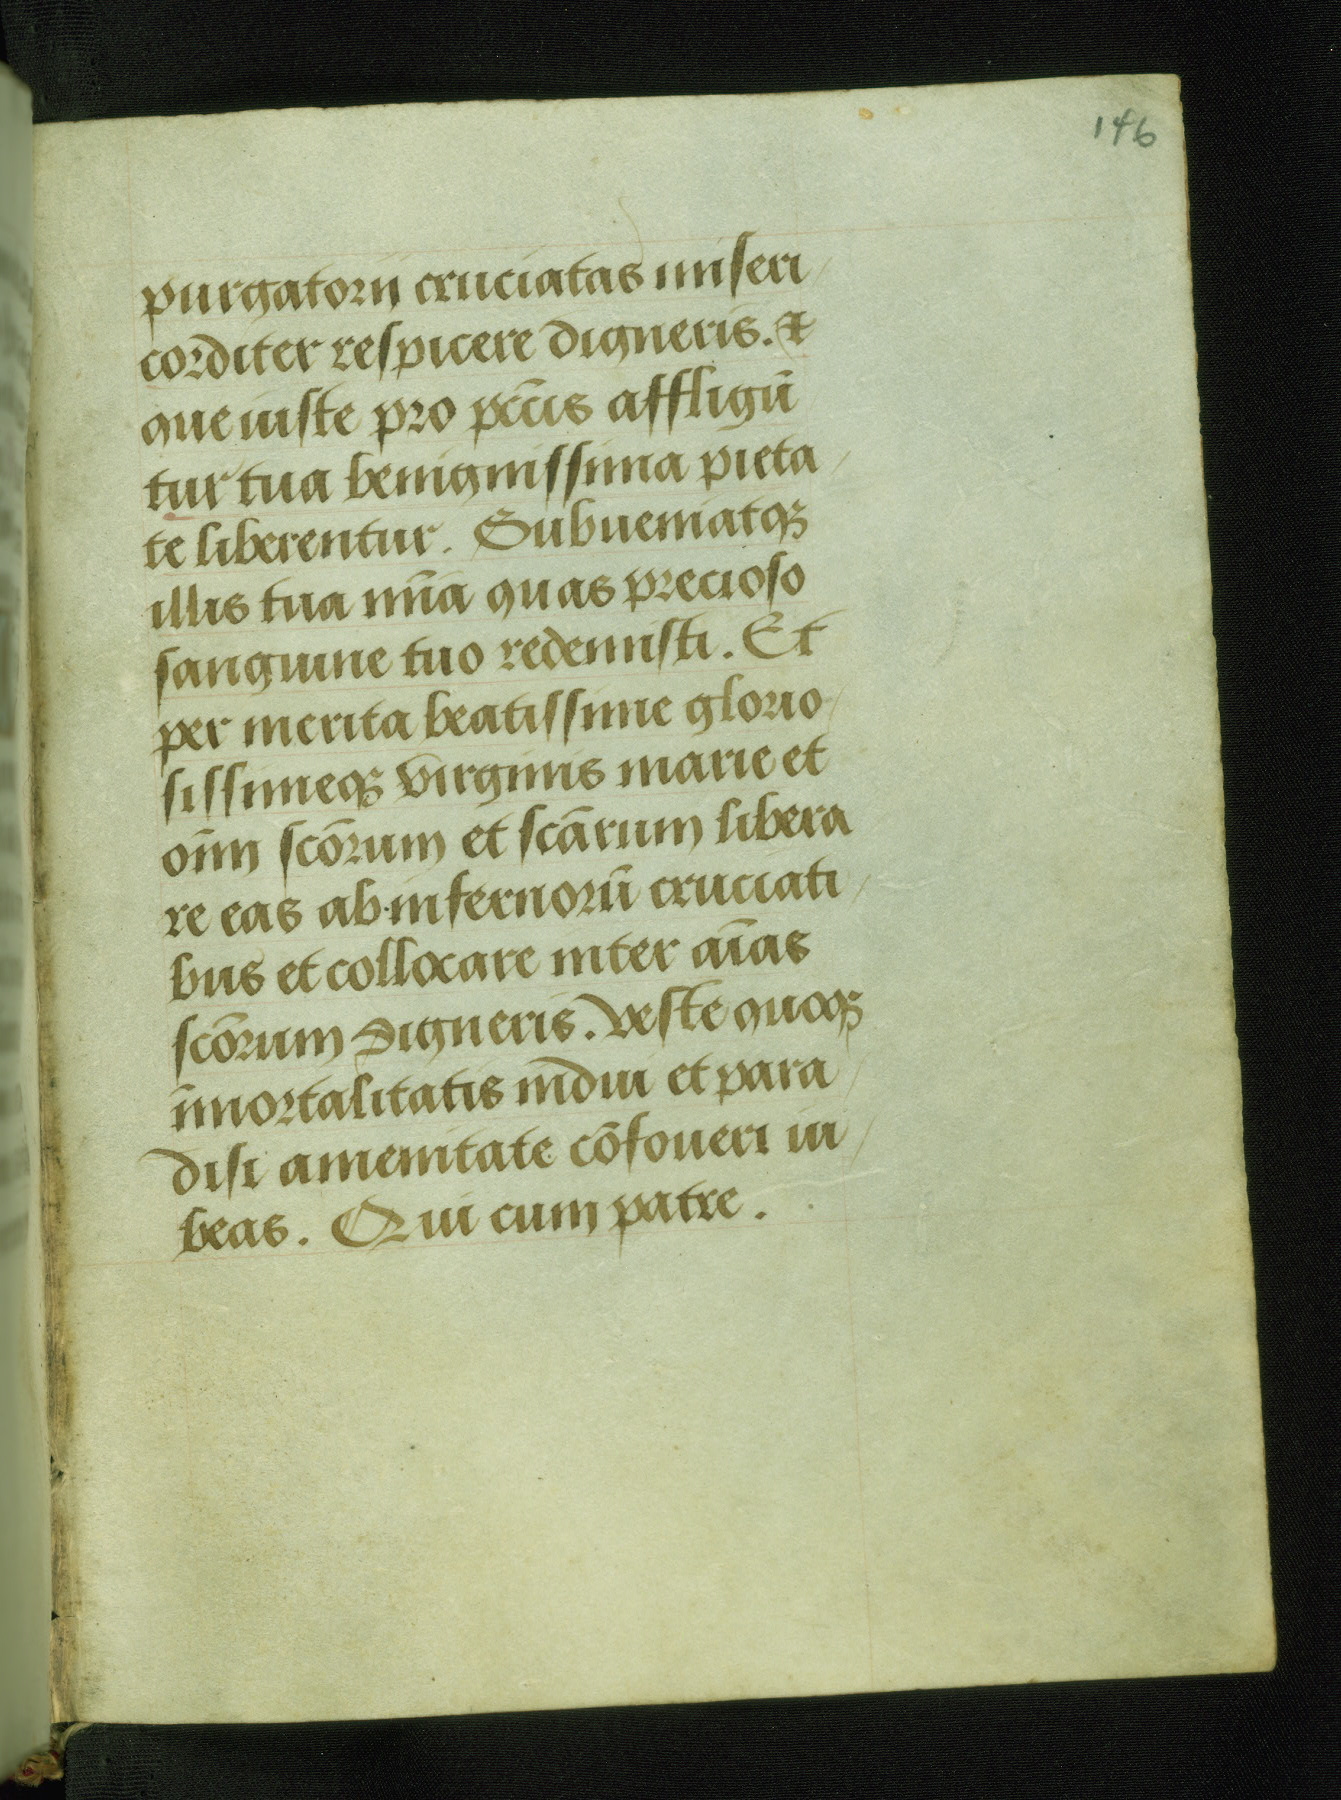 146
purgatorij cruciatas miseri
corditer respicere digneris. &
que iuste pro pctīs affligū
tur tua benignissima pieta
te liberentur. Subueniatqꝫ
illis tua mīa quas precioso
sanguine tuo redemisti. Et
per merita beatissime glorio
sissimeqꝫ virginis marie et
oīm scōrum et scārum libera
re eas ab infernorū cruciati
bus et collocare inter aīas
scōrum digneris. veste quoqꝫ
īmortalitatis īndui et para
disi amenitate cōfoueri iu
beas. Qui cum patre.